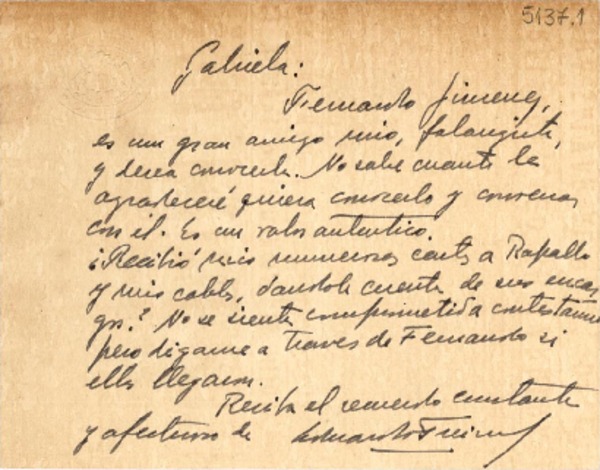 5137.1
Gabriela:
Fernando Jimenez,
es un gran amigo mio, falangista,
y desea conocerla. No sabe cuanto le
agradeceré quiera conocerlo y conversar
con él. Es un valor autentico.
¿Recibió mis numerosas cartas a Rapallo
y mis cables, dandole cuenta de sus encar
gos? No se sienta comprometida contestarme
pero digame a traves de Fernando si
ellas llegaron.
Reciba el recuerdo constante
y afectuoso de Eduardo